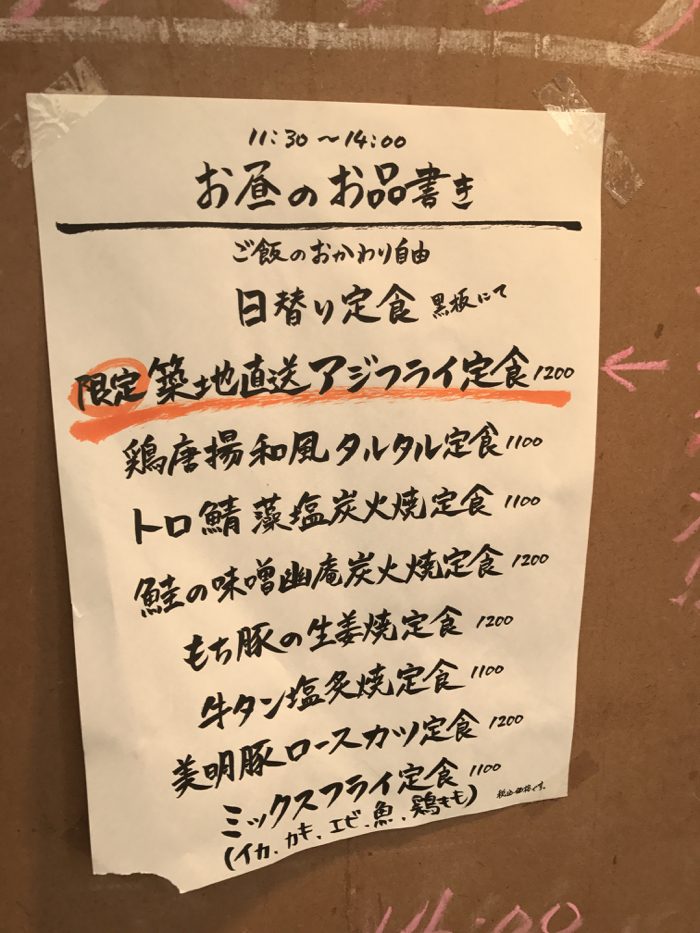 11:30〜14:00
お昼のお品書き
ご飯のおかわり自由
日替り定食 黒板にて
限定 築地直送アジフライ定食 1200
鶏唐揚和風タルタル定食 1100
トロ鯖藻塩炭火焼定食 1100
鮭の味噌幽庵炭火焼定食 1200
もち豚の生姜焼定食 1200
牛タン塩炙焼定食 1100
美明豚ロースカツ定食 1200
ミックスフライ定食 1100
(イカ、カキ、エビ、魚、鶏もも)
税込価格です。
14:00